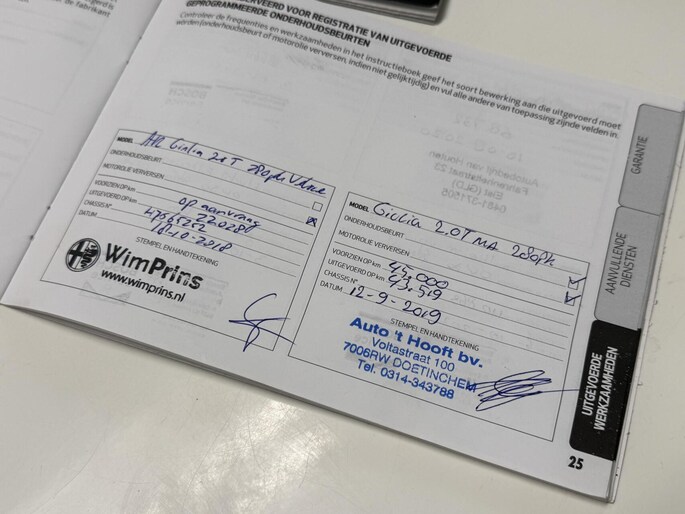 RESERVEERD VOOR REGISTRATIE VAN UITGEVOERDE
GEPROGRAMMEERDE ONDERHOUDSBEURTEN
Controleer de frequenties en werkzaamheden in het instructieboek geef het soort bewerking aan die uitgevoerd moet
worden (onderhoudsbeurt of motorolie verversen, indien niet gelijktijdig) en vul alle andere van toepassing zijnde velden in.
MODEL Giulia 2.0T 280pk
ONDERHOUDSBEURT
MOTOROLIE VERVERSEN
VOORZIEN OP km op aanvraag
UITGEVOERD OP km 22.028
CHASSIS N° 47565252
DATUM 18-10-2018
STEMPEL EN HANDTEKENING
WimPrins
www.wimprins.nl
MODEL Giulia 2.0T MA 280pk
ONDERHOUDSBEURT
MOTOROLIE VERVERSEN
VOORZIEN OP km 45.000
UITGEVOERD OP km 43.519
CHASSIS N°
DATUM 12-9-2019
STEMPEL EN HANDTEKENING
Auto 't Hooft bv.
Voltastraat 100
7006RW DOETINCHEM
Tel. 0314-343788
GARANTIE
AANVULLENDE
DIENSTEN
UITGEVOERDE
WERKZAAMHEDEN
25